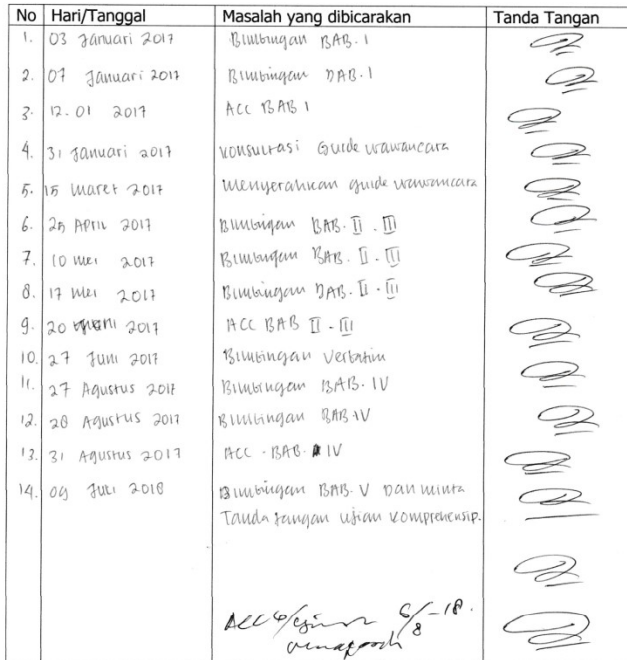 No Hari/Tanggal Masalah yang dibicarakan Tanda Tangan
1. 03 Januari 2017 Bimbingan BAB. I
2. 07 Januari 2017 Bimbingan BAB. I
3. 12.01 2017 ACC BAB I
4. 31 Januari 2017 Konsultasi Guide wawancara
5. 15 Maret 2017 Menyerahkan guide wawancara
6. 25 April 2017 Bimbingan BAB. II . III
7. 10 Mei 2017 Bimbingan BAB. II . III
8. 17 Mei 2017 Bimbingan BAB. II . III
9. 20 2017 ACC BAB II - III
10. 27 Juni 2017 Bimbingan Verbatim
11. 27 Agustus 2017 Bimbingan BAB. IV
12. 28 Agustus 2017 Bimbingan BAB IV
13. 31 Agustus 2017 ACC - BAB. IV
14. 09 Juli 2018 Bimbingan BAB. V Dan minta
Tanda tangan ujian komprehensip.
ACC 6/8 -18.